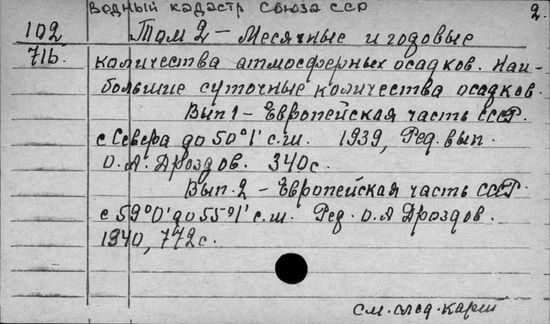 Водный кадастр Союза ССР
2.
102 Том 2 – Месячные и годовые
71б. количества атмосферных осадков. Наи-
большие суточные количества осадков.
Вып. 1 – Европейская часть СССР.
с Севера до 50°1' с.ш. 1939, Ред. вып.
О.А. Дроздов. 340 с.
Вып. 2 – Европейская часть СССР.
с 59°0' до 55°1' с.ш. Ред. О.А Дроздов.
1940, 772 с.
см. след. карт